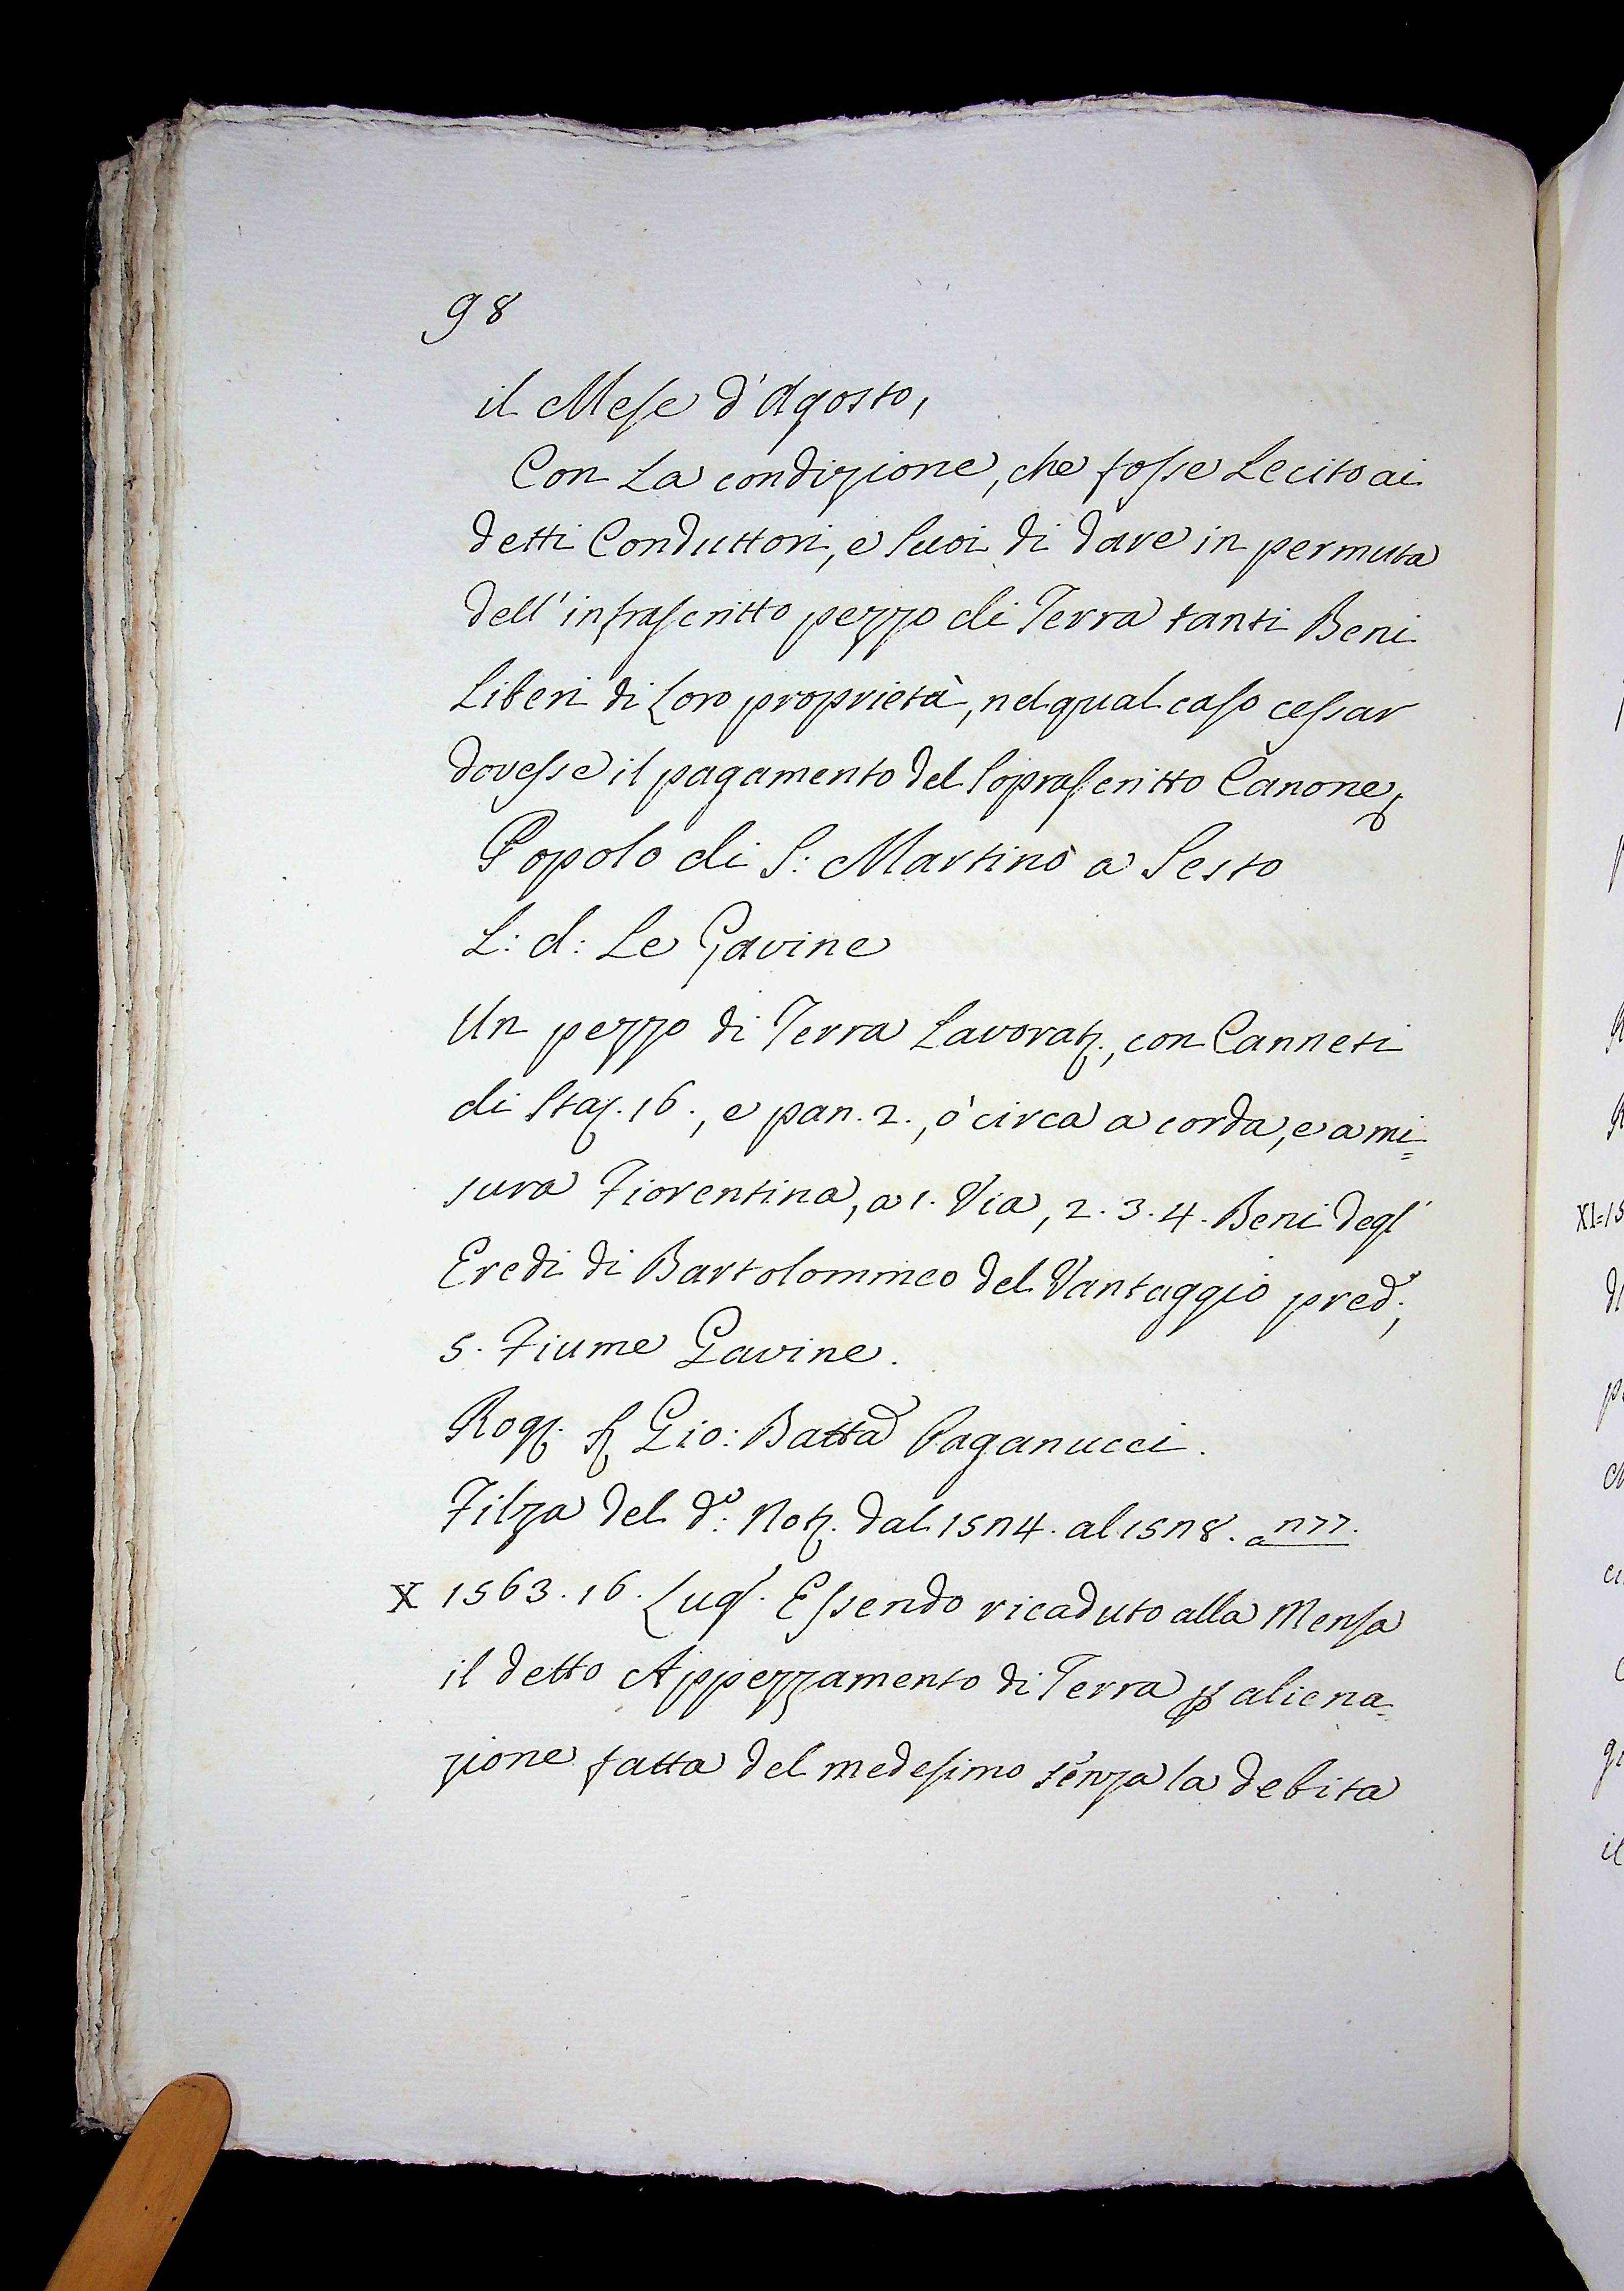 98
il Mese d'Agosto,
Con La condizione, che fosse Lecito ai
detti Conduttori, e Suoi di dare in permuta
dell'infrascritto pezzo di Terra tanti Beni
Liberi di Loro proprietà, nel qual caso cessar
dovesse il pagamento del Soprascritto Canone,
Popolo di S: Martino a Sesto
L: d: Le Gavine
Un pezzo di Terra Lavorat., con Canneti
di Sta. 16., e pan. 2., ò circa a corda, e a mi=
sura Fiorentina, a 1. Via, 2. 3. 4. Beni degl'
Eredi di Bartolommeo del Vantaggio pred.°,
5. Fiume Gavine.
Rog. Gio: Batta Paganucci.
Filza del d.°: Not. dal al a
X 1563. 16. Lugl. Essendo ricaduto alla Mensa
il detto Appezzamento di Terra p aliena=
zione fatta del medesimo senza la debita
XI=15
di
il